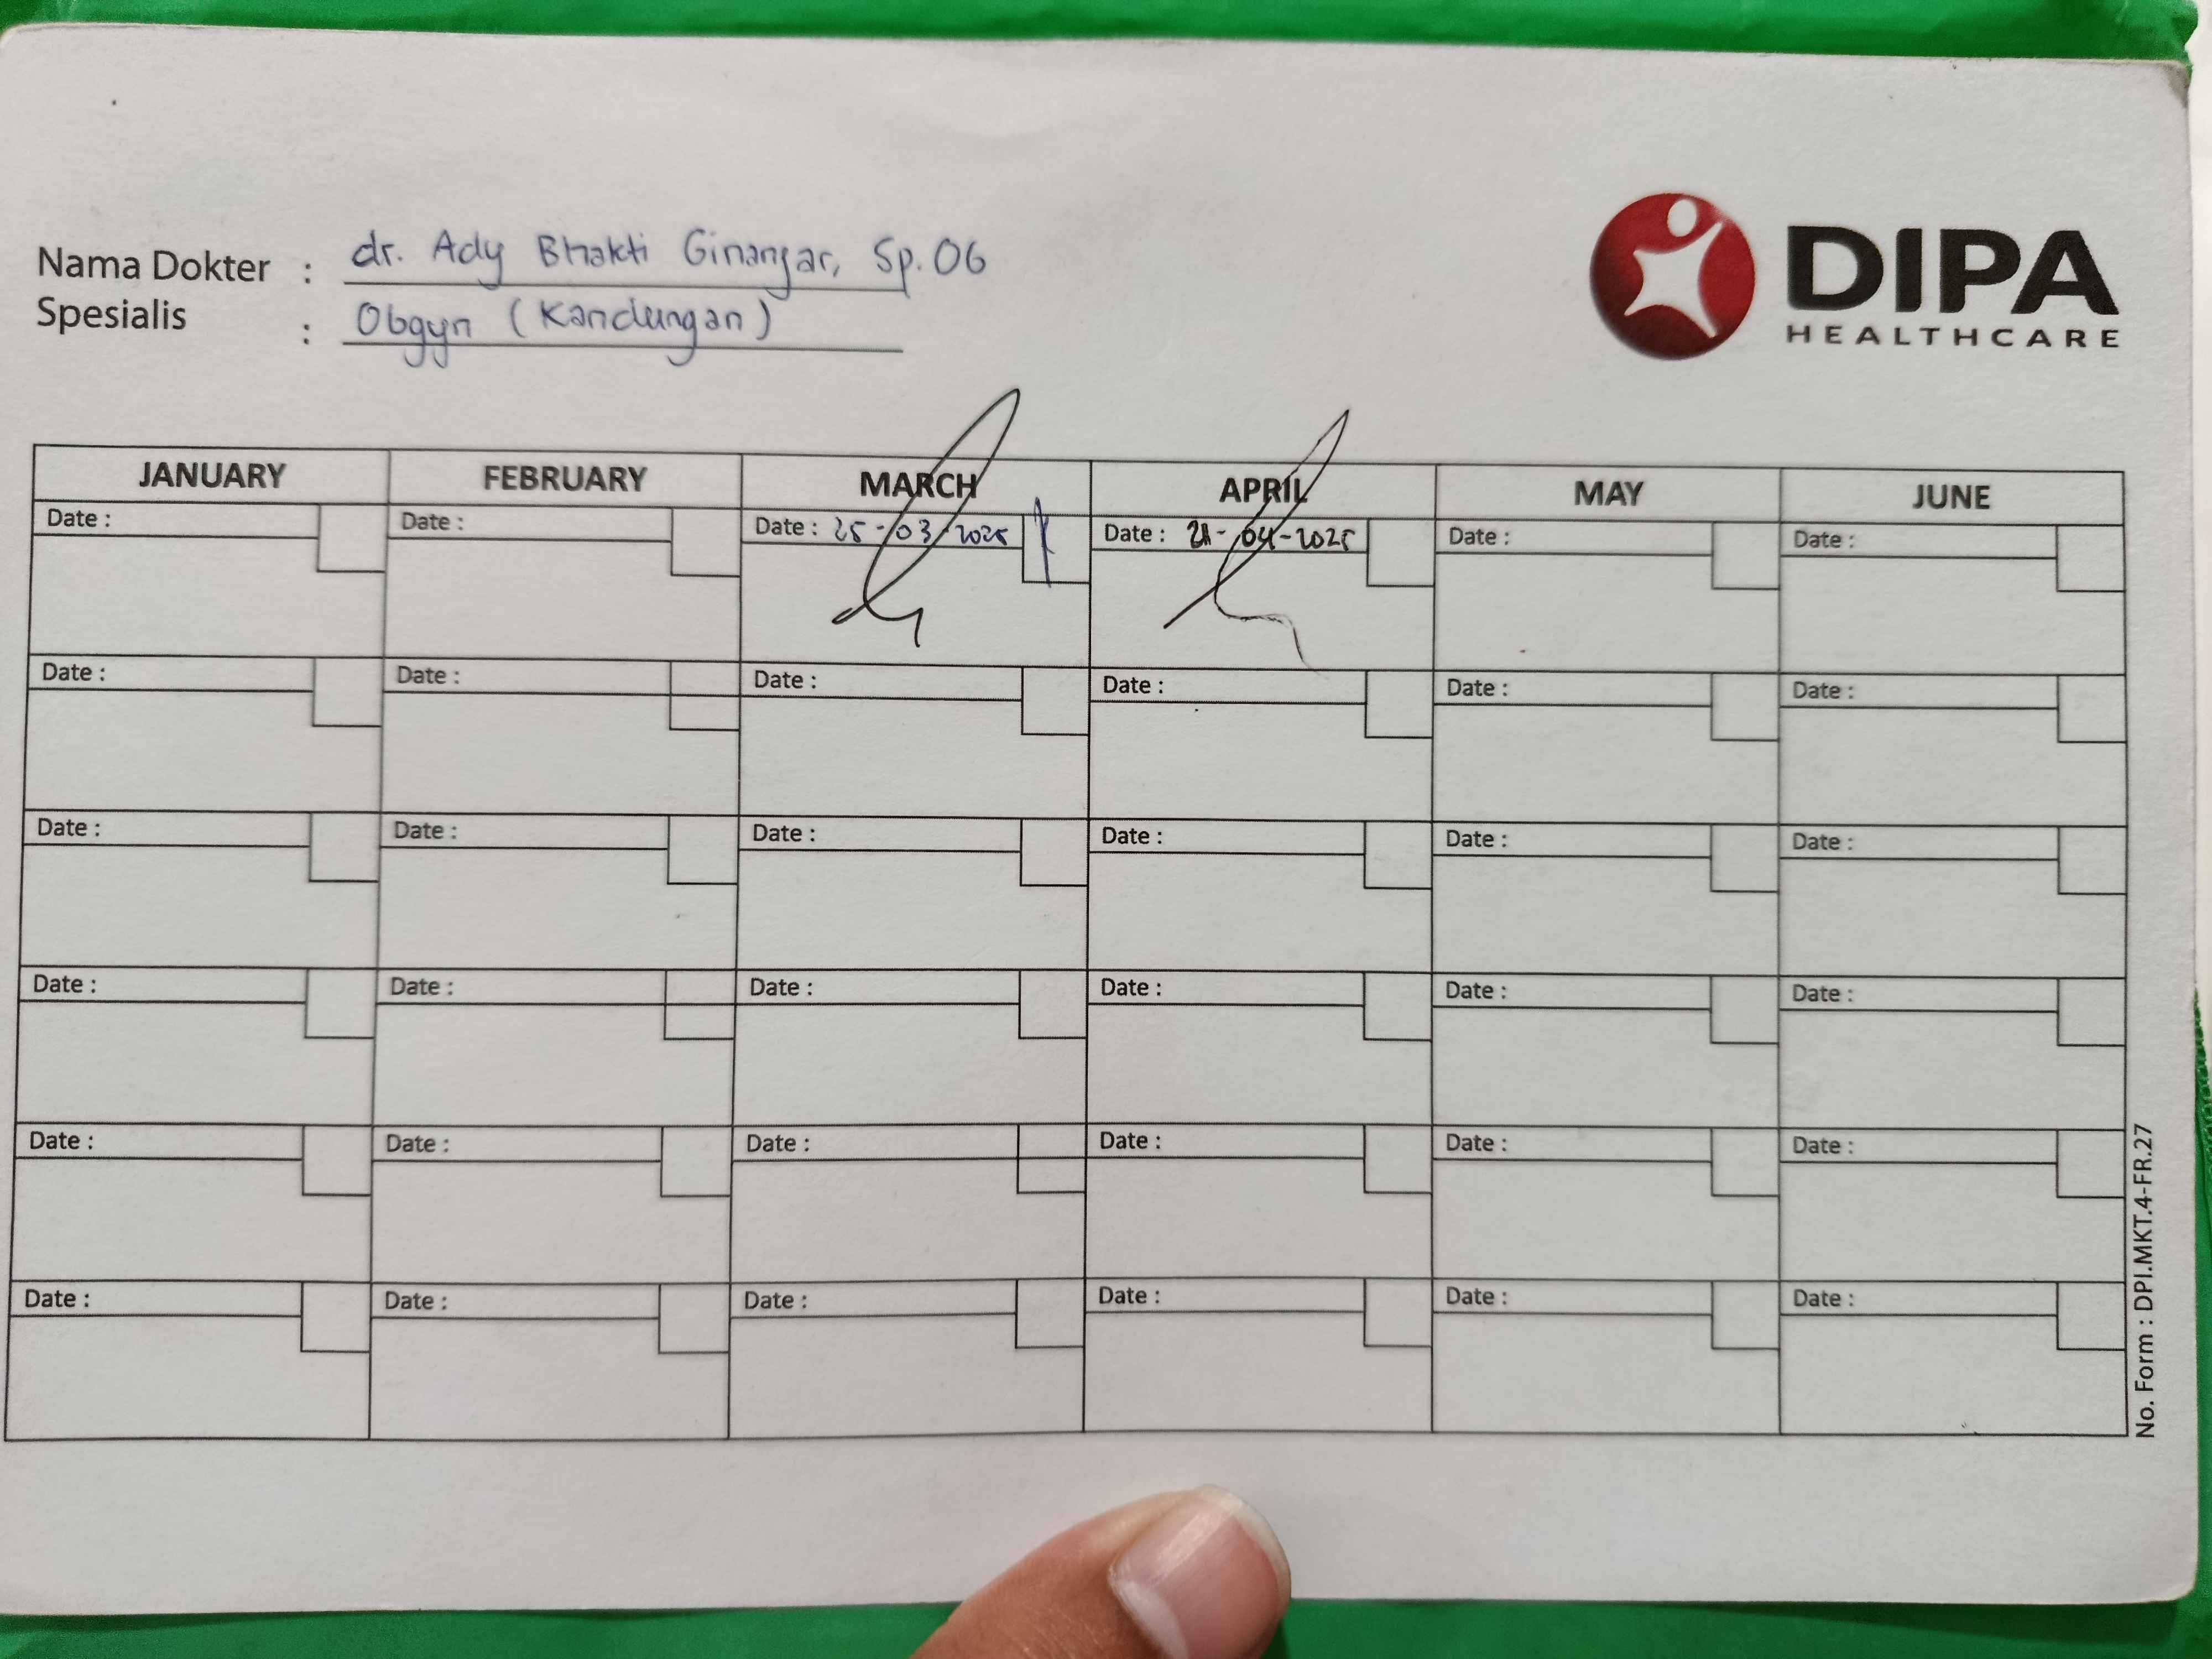 Nama Dokter : dr. Ady Bhakti Ginanjar, Sp.OG
Spesialis : Obgyn (Kandungan)
DIPA
HEALTHCARE
JANUARY FEBRUARY MARCH APRIL MAY JUNE
Date : Date : Date : 25-03-2025 Date : 21-04-2025 Date : Date :
Date : Date : Date : Date : Date : Date :
Date : Date : Date : Date : Date : Date :
Date : Date : Date : Date : Date : Date :
Date : Date : Date : Date : Date : Date :
Date : Date : Date : Date : Date : Date :
No. Form : DPI.MKT.4-FR.27